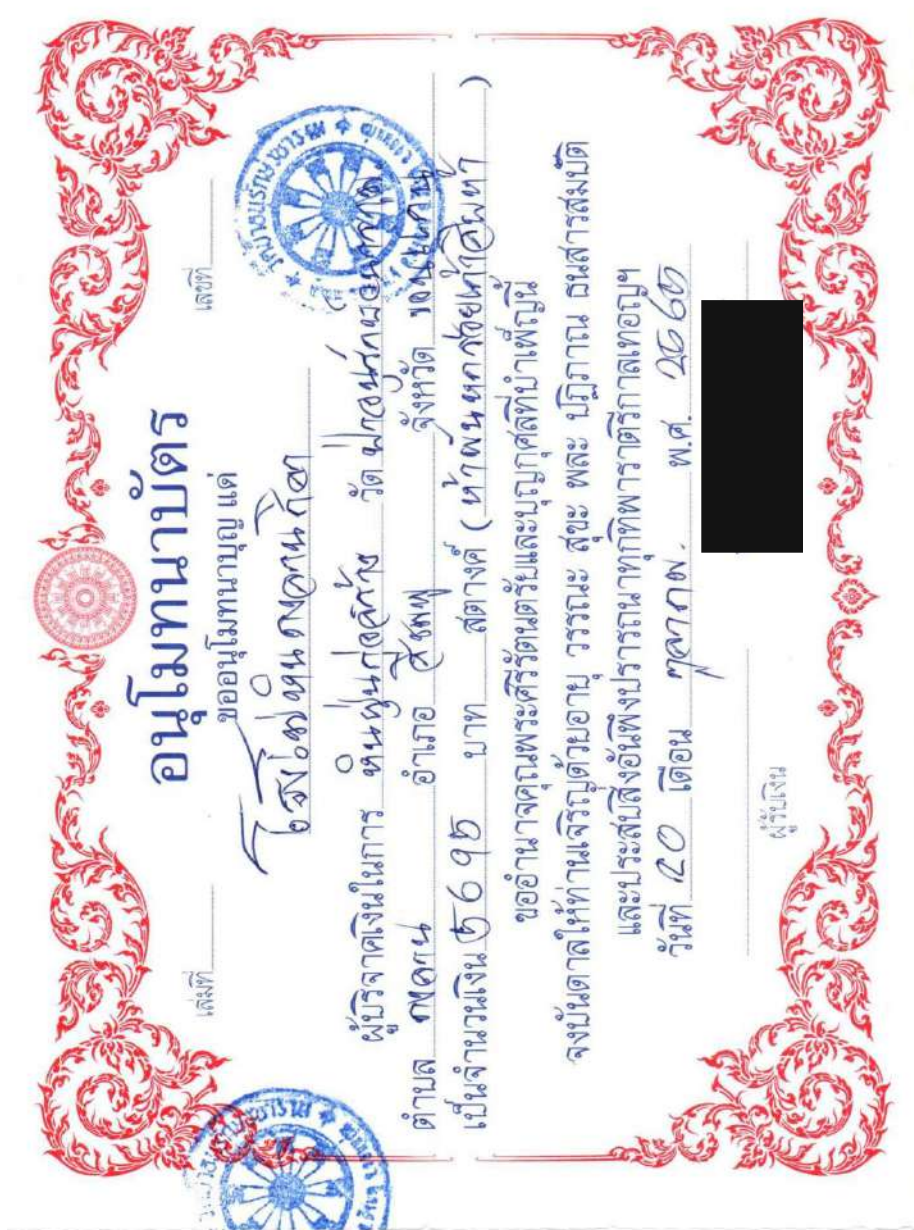 เล่มที่ เลขที่
อนุโมทนาบัตร
ขออนุโมทนาบุญ แด่
ผู้บริจาคเงินในการ วัด
ตำบล อำเภอ สีชมพู จังหวัด ขอนแก่น
เป็นจำนวนเงิน 5695 บาท สตางค์ (ห้าพันหกร้อยเก้าสิบห้า)
ขออำนาจคุณพระศรีรัตนตรัยและบุญกุศลที่บำเพ็ญนี้
จงบันดาลให้ท่านเจริญด้วยอายุ วรรณะ สุขะ พละ ปฏิภาณ ธนสารสมบัติ
และประสบสิ่งอันพึงปรารถนาทุกทิพาราตรีกาลเทอญฯ
วันที่ 20 เดือน ตุลาคม. พ.ศ. 2565
ผู้รับเงิน